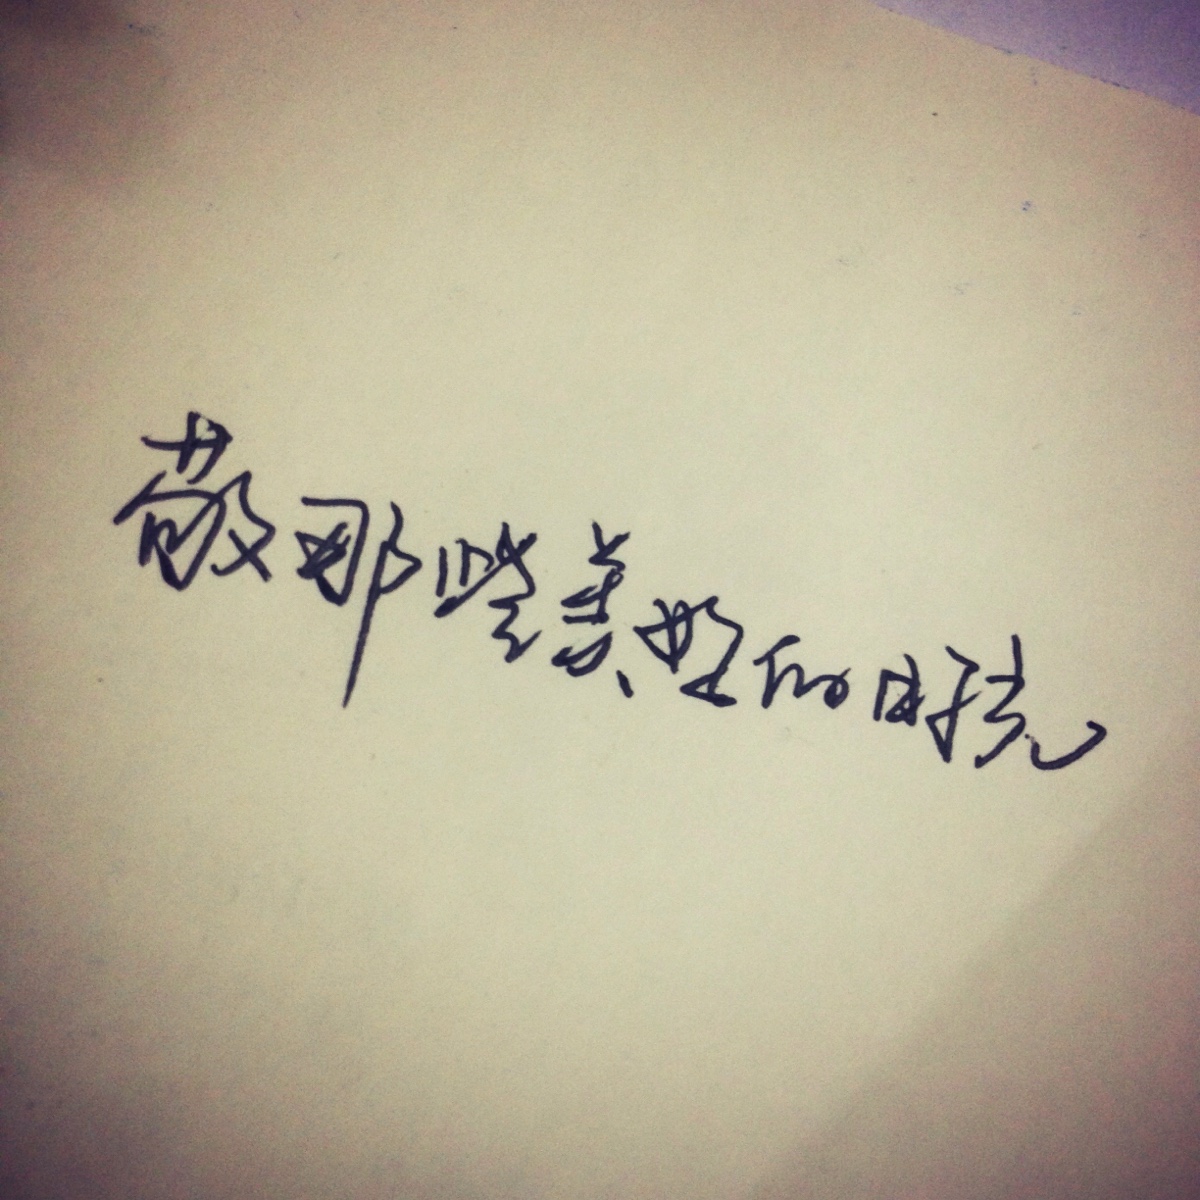 敬那些美好的时光